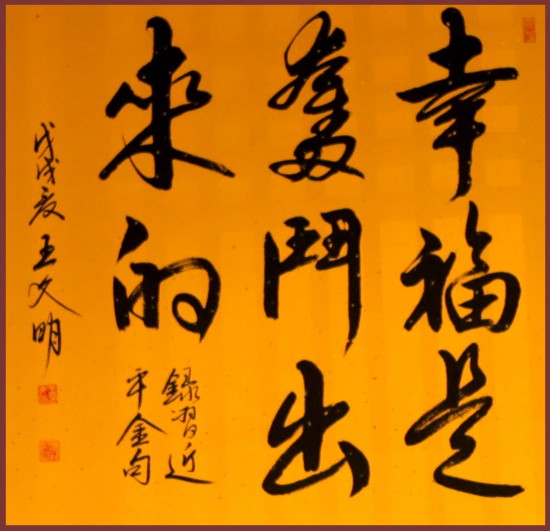 幸福是
奮鬥出
來的
錄習近
平金句
戊戌夏王文明